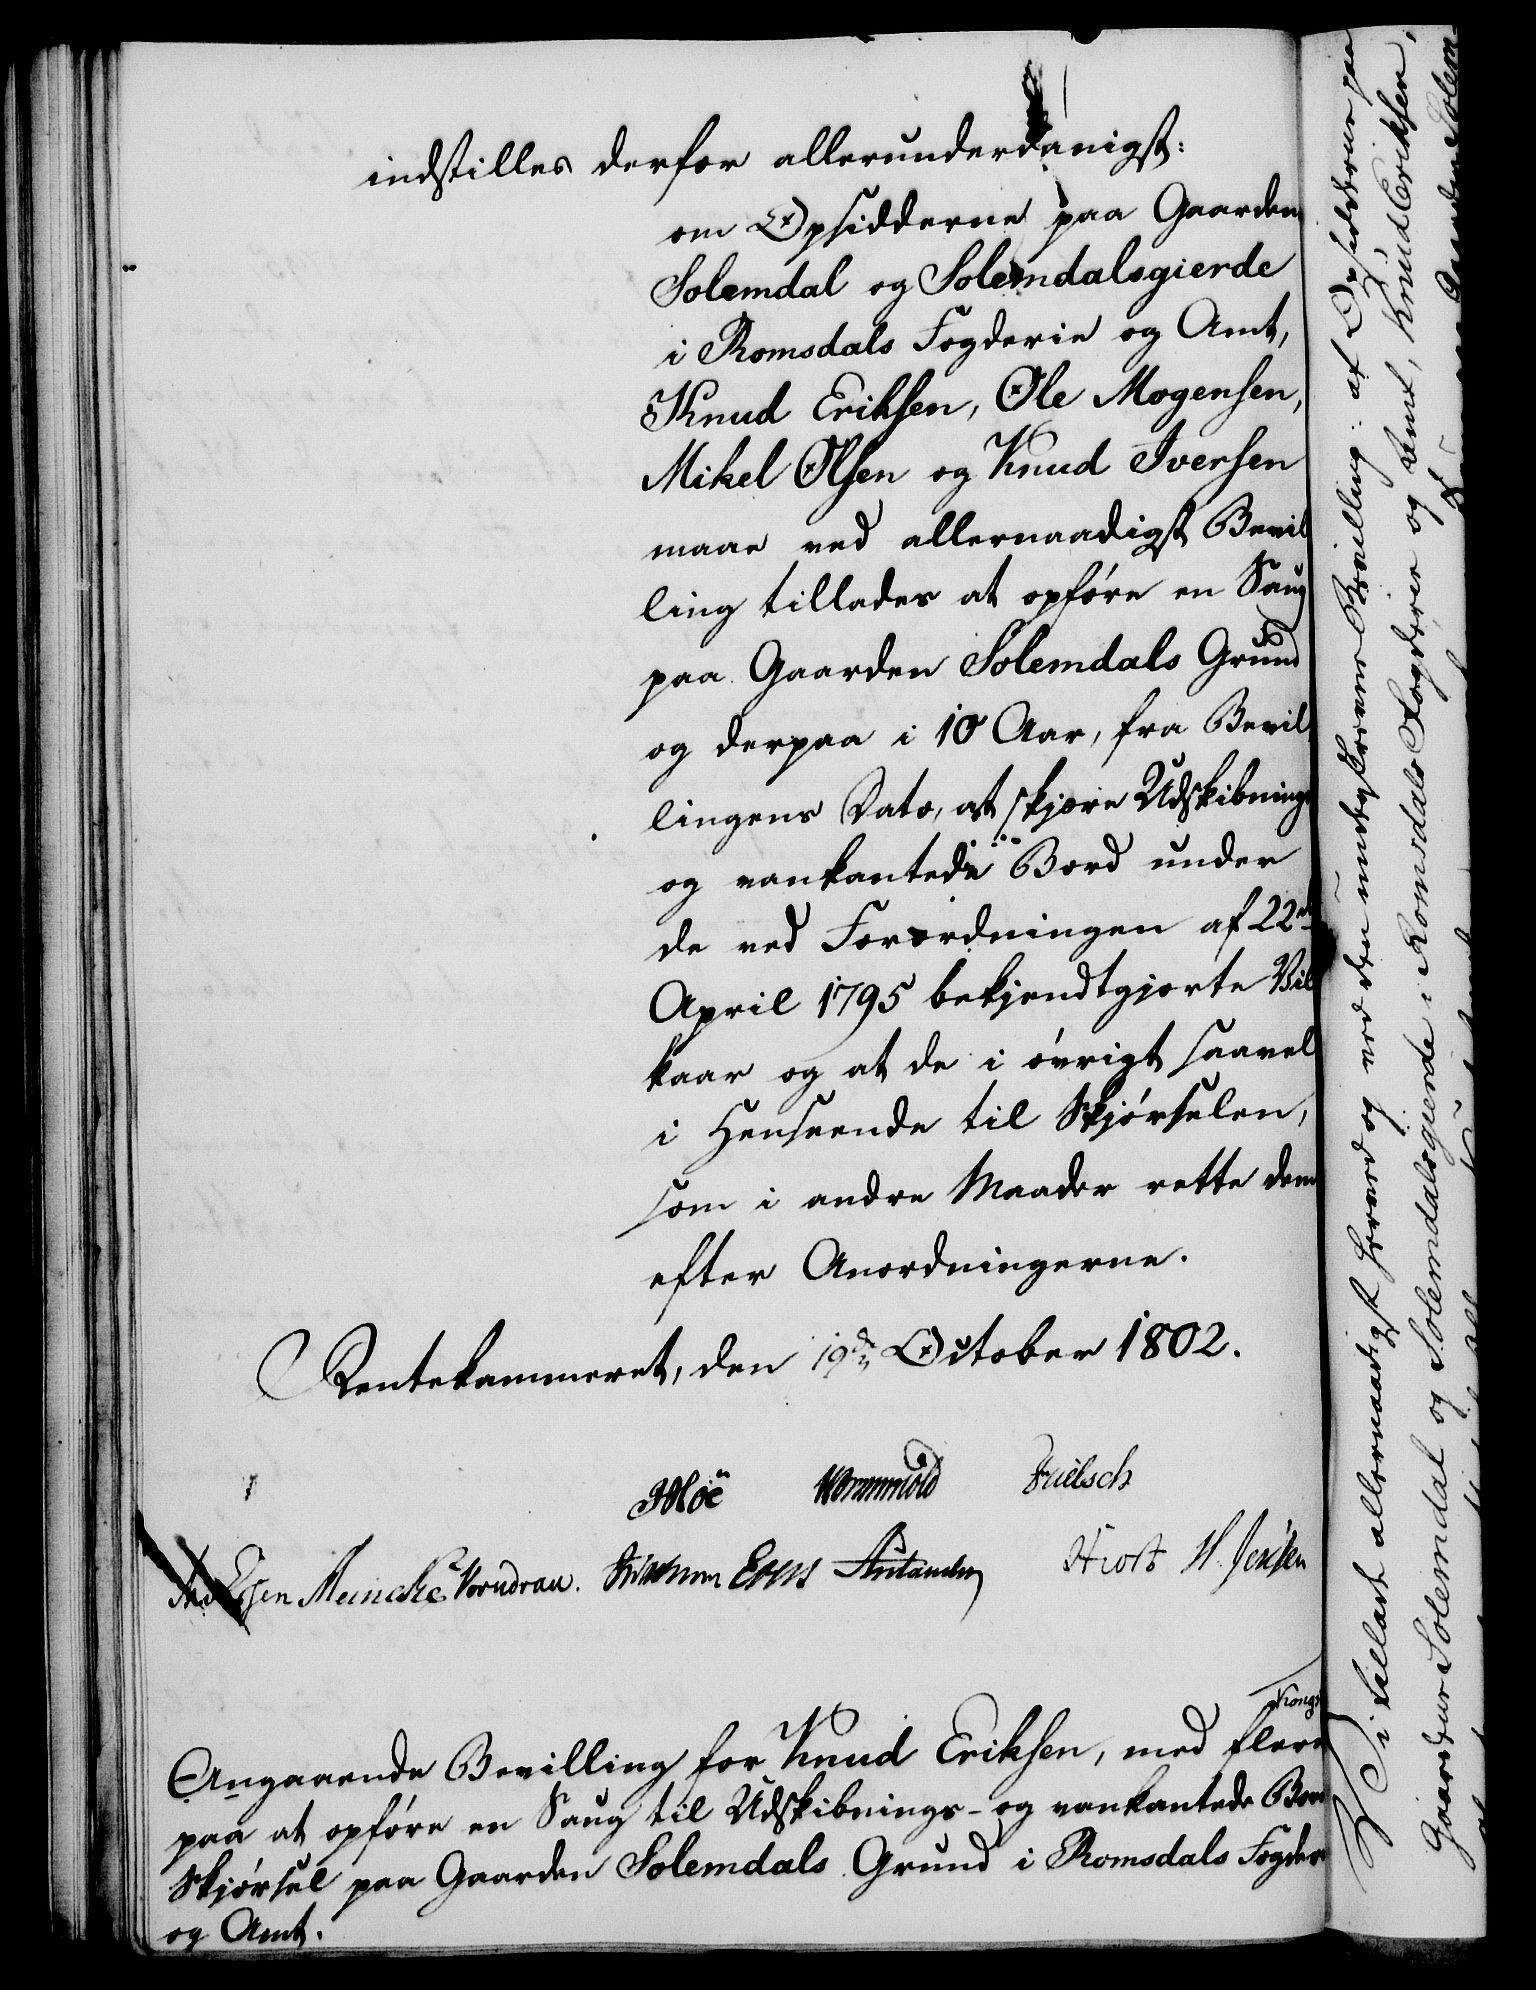 indstilles derfor allerunderdanigst:
om Opsidderne paa Gaarden
Solemdal og Solemdalsgierde
i Romsdals Fogderie og Amt,
Knud Eriksen, Ole Mogensen,
Mikel Olsen og Knud Iversen
maae ved allernaadigst Bevil
ling tillades at opføre en Saug
paa Gaarden Solemdals Grund
og derpaa i 10 Aar, fra Bevil
lingens Dato, at skjære Udskibnings
og vankantede Bord under
de ved Forordningen af 22de
April 1795 bekjendtgjorte Vil
kaar og at de i øvrigt saavel
i Henseende til Skjørselen,
som i andre Maader rette dem
efter Anordningerne.
Rentekammeret, den 19de October 1802.
Wormskiold
Meinche Vorndran. Hiort H. Jensen
Angaaende Bevilling for Knud Eriksen, med flere
paa at opføre en Saug til Udskibnings- og vankantede Bord
Skjørsel paa Gaarden Solemdals Grund i Romsdals Fogderi
og Amt.
Vi tillade allernaadigst herved og ved den underskrevne Bevilling: at Opsidderne paa
Gaardene Solemdal og Solemdalsgierde i Romsdals Fogderie og Amt, Knud Eriksen,